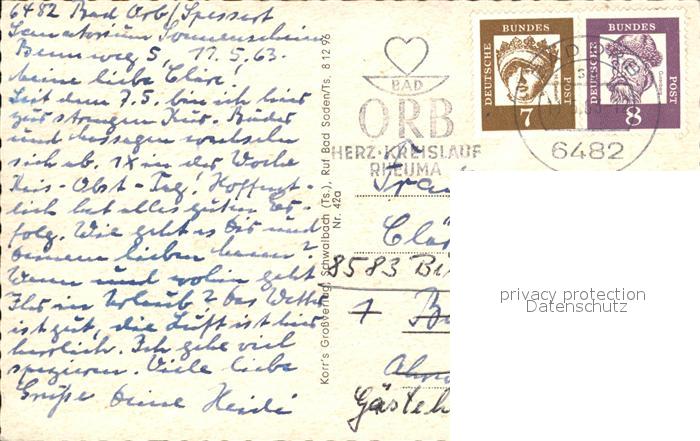 6482 Bad Orb/Spessart
Sanatorium Sonnenschein
5, 11.5.63.
Meine liebe Cläre!
Seit dem 7.5. bin ich hier
zur strengen Kur. Bäder
und Massagen wechseln
sich ab. 1x in der Woche
Reis-Obst-Tag! Hoffent-
lich hat alles guten Er-
folg. Wie geht es Dir und
Deinem lieben
Wann und wohin geht
Ihr in Urlaub? Das Wetter
ist gut, die Luft ist hier
herrlich. Ich gehe viel
spazieren. Viele liebe
Grüße Deine Heidi
Korr's Großverlag, Schwalbach (Ts.), Ruf Bad Soden/Ts. 8 12 96
Nr. 42a
BAD
ORB
HERZ-KREISLAUF
RHEUMA
DEUTSCHE BUNDES POST
7
DEUTSCHE BUNDES POST
8
6482
Frau
Clär
8583 Bi
privacy protection
Datenschutz